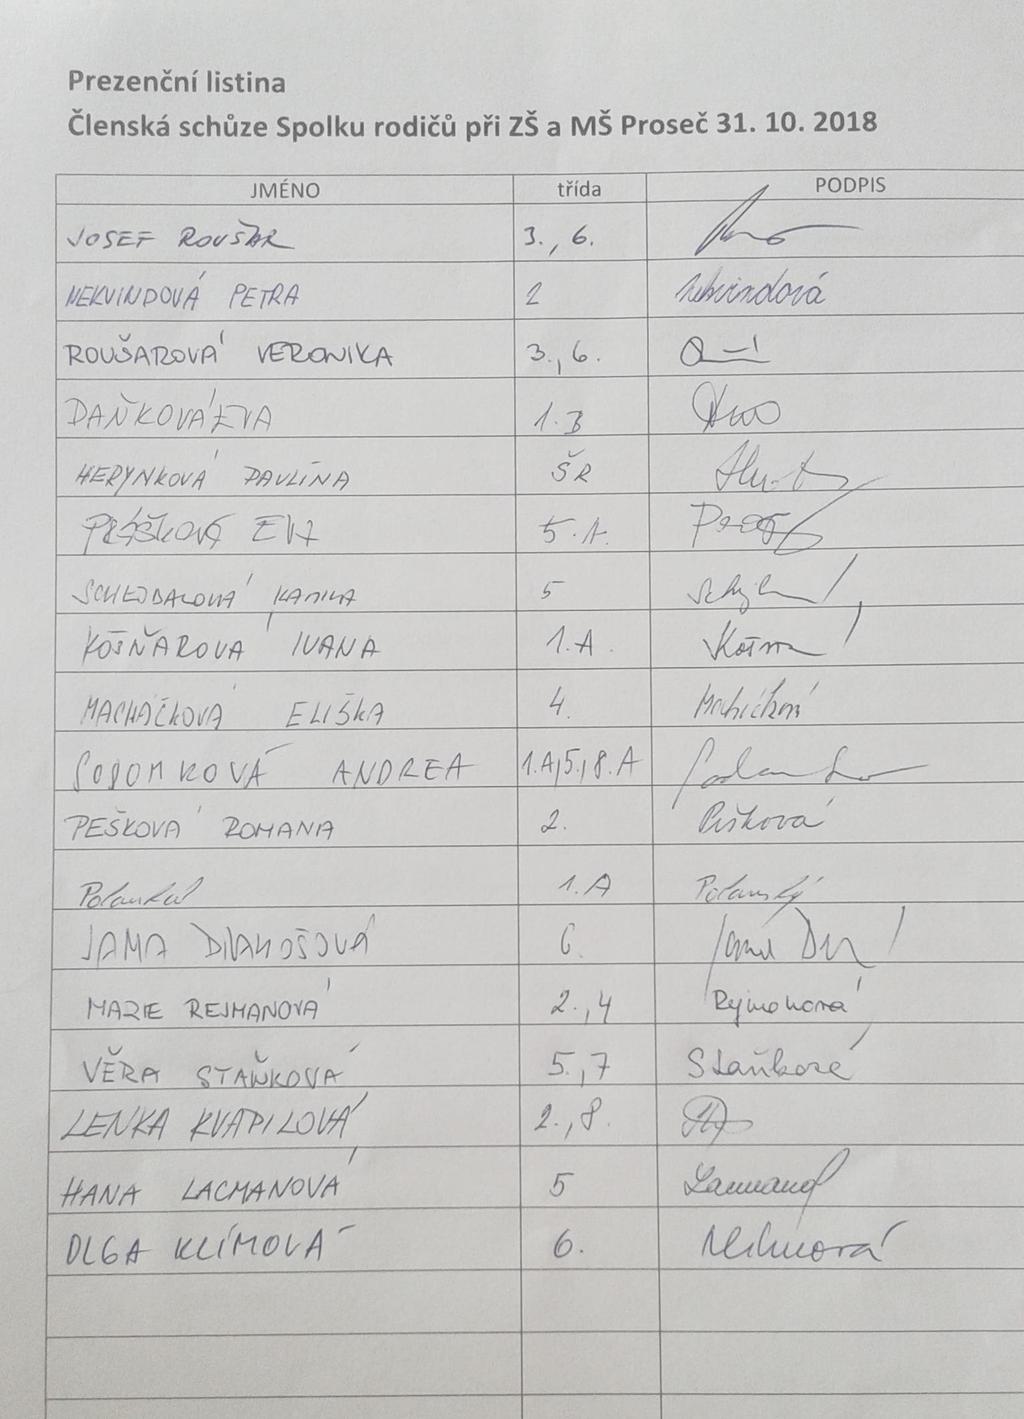 Prezenční listina
Členská schůze Spolku rodičů při ZŠ a MŠ Proseč 31. 10. 2018
JMÉNO třída PODPIS
JOSEF ROUŠAR 3., 6.
NEKVINDOVÁ PETRA 2 Nekvindová
ROUŠAROVÁ VERONIKA 3., 6.
DAŇKOVÁ EVA 1.B
HERYNKOVÁ PAVLÍNA ŠR
PRÁŠKOVÁ EVA 5.A.
SCHEJBALOVÁ KAMILA 5
KOŠŇAROVÁ IVANA 1.A.
MACHÁČKOVÁ ELIŠKA 4.
SODOMKOVÁ ANDREA 1.A,5.,8.A
PEŠKOVÁ ROMANA 2. Pešková
1.A Polanský
JANA 6.
MARIE REJMANOVÁ 2.,4 Rejmanová
VĚRA STAŇKOVÁ 5.,7 Staňková
LENKA KVAPILOVÁ 2.,8.
HANA LACMANOVÁ 5
OLGA KLÍMOVÁ 6. Klímová